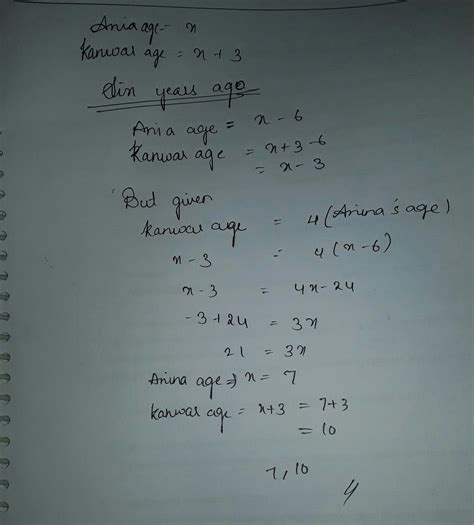 Ania age = x
Kanwar age = x + 3
Six years ago
Ania age = x - 6
Kanwar age = x+3-6
= x - 3
But given
Kanwar age = 4 (Anina's age)
x-3 = 4(x-6)
x-3 = 4x-24
-3+24 = 3x
21 = 3x
Anina age ⇒ x = 7
Kanwar age = x+3 = 7+3
= 10
7, 10
4